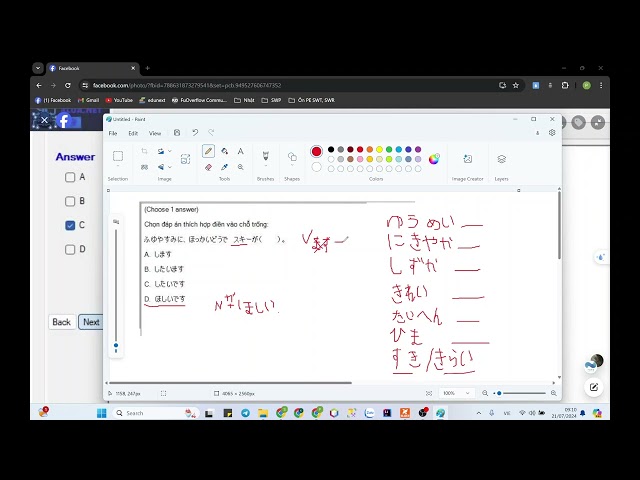 Facebook
facebook.com/photo/?fbid=788631873279541&set=pcb.949527606747352
(1) Facebook
Gmail
YouTube
edunext
FuOverflow Commu...
Nhật
SWP
Ôn PE SWT, SWR
Answer
A
B
C
D
Back
Next
Untitled - Paint
File
Edit
View
Selection
Image
Tools
Brushes
Shapes
Colors
Image Creator
Layers
(Choose 1 answer)
Chọn đáp án thích hợp điền vào chỗ trống:
ふゆやすみに、ほっかいどうで スキーが( )。
A. します
B. したいます
C. したいです
D. ほしいです
V ます
Nが ほしい.
ゆうめい
にぎやか
しずか
きれい
たいへん
ひま
すき/きらい
1158, 247px
4065 × 2560px
100%
Search
VIE
09:10
21/07/2024